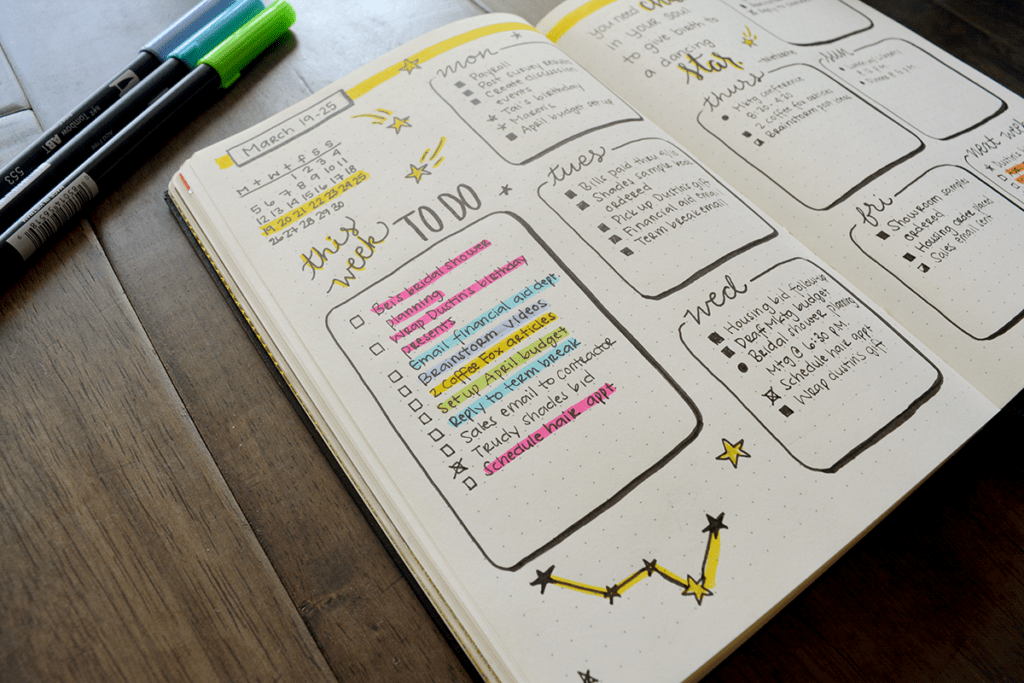 March 19-25
M T W T F S S
1 2 3 4
5 6 7 8 9 10 11
12 13 14 15 16 17 18
19 20 21 22 23 24 25
26 27 28 29 30
this
week
TO DO
Bei's bridal shower
planning
Wrap Dustin's birthday
presents
Email financial aid dept.
Brainstorm videos
2 Coffee Fox articles
Set up April budget
Reply to term break
Sales email to contractor
Trudy shades bid
Schedule hair appt
mon
Payroll
Post survey
Create discussion
events
Tai's birthday
April budget set up
tues
Bills paid thru 4/
Shades sample book
ordered
Pick up Dustin's gift
Financial aid email
Term break email
wed
Housing bid followup
Draft Mktg budget
Bridal shower planning
Mtg @ 6:30 P.M.
Schedule hair appt
Wrap dustin's gift
you need
in your soul
to give birth to
a dancing
star
thurs
Mktg conference
8:30-4:30
2 coffee fox articles
Brainstorm
fri
Showroom samples
ordered
Housing order placed
Sales email sent
next week
Tombow ABT
553